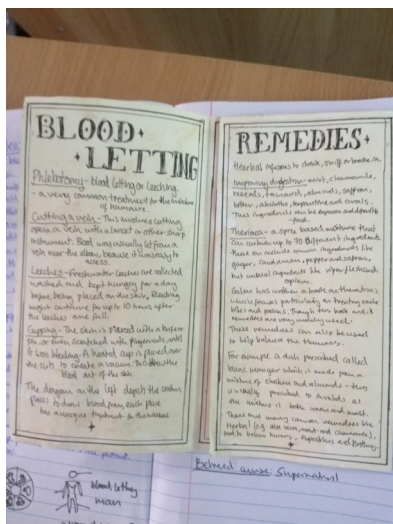 BLOOD
LETTING
Phlebotomy - blood letting or leeching
- a very common treatment for the imbalance
of humours.
Cutting a vein - This involves cutting
open a vein with a lancet or other sharp
instrument. Blood was usually let from a
vein near the elbow, because it was easy to
access.
Leeches - Freshwater leeches are collected
washed and kept hungry for a day
before being placed on the skin, Bleeding
might continue for up to 10 hours after
the leeches and fall.
Cupping - The skin is pierced with a knife or
pin or even scratched with fingernails until
it was bleeding. A heated cup is placed over
the cuts to create a vacuum. This drew the
blood out of the skin.
The diagram on the left depicts the common
places to draw blood from, each place
has a unique treatment for the
REMEDIES
Herbal infusions to drink, sniff or bathe in
Improving digestion - mint, chamomile,
tamarind, almonds, saffron,
butter, absinthe, turpentine and corals.
This ingredients can be expensive and difficult to
find.
Theriaca - a spice based mixture that
can contain up to 70 different ingredients
these can include common ingredients like
ginger, cardamom, pepper and saffron,
but unusual ingredients like viper flesh and
opium.
Galen has written a book on theriaca
which focuses particularly on treating snake
bites and poisons, though this book and it
remedies are very widely used.
These remedies can also be used
to help balance the Humours.
For example a dish prescribed called
blanc manger which is made from a
mixture of chicken and almonds - this
usually prescribed to invalids as
the mixture is both warm and moist.
There are many common remedies like
Herbal (e.g. aloe vera, mint and chamomile),
balance humours,
Believed cause: Supernatural
blood letting
man